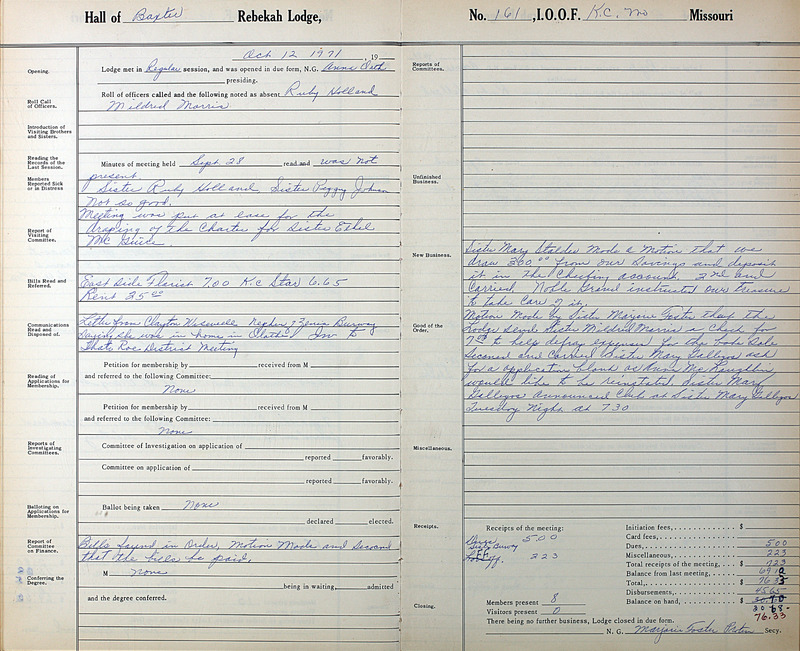 Hall of Baxter Rebekah Lodge,
Oct 12 1971, 19
Opening.
Lodge met in Regular session, and was opened in due form, N.G. Anna
presiding.
Roll Call of Officers.
Roll of officers called and the following noted as absent Ruby Holland
Mildred Morris
Introduction of Visiting Brothers and Sisters.
Reading the Records of the Last Session.
Minutes of meeting held Sept. 28 read and was not
present.
Members Reported Sick or in Distress
Sister Ruby Holland Sister Peggy Johnson
Not so good.
Meeting was put at ease for the
Report of Visiting Committee.
draping of the Charter for Sister Ethel
Bills Read and Referred.
East Side Florist 7.00 K.C Star 6.65
Rent 35.00
Communications Read and Disposed of.
Letter from Clayton nephew of
saying she was in home in
District Meeting
Petition for membership by received from M
Reading of Applications for Membership.
and referred to the following Committee:
None
Petition for membership by received from M
and referred to the following Committee:
None
Reports of Investigating Committees.
Committee of Investigation on application of
reported favorably.
Committee on application of
reported favorably.
Balloting on Applications for Membership.
Ballot being taken None
declared elected.
Report of Committee on Finance.
Bills found in Order, Motion Made and Second
that the bills be paid.
Conferring the Degree.
M None
being in waiting, admitted
and the degree conferred.
No. 161, I.O.O.F. K.C. Mo Missouri
Reports of Committees.
Unfinished Business.
New Business.
Sister Mary Stalder Made a Motion that we
draw 200.00 from our Savings and deposit
it in the Checking account 2nd and
Carried. Noble Grand instructed our treasure
to take care of it.
Good of the Order.
Motion Made by Sister Marjorie Foster that the
Lodge send Sister Mildred Morris a Check for
to help defray expenses for the Sale
Second and Carried Sister Mary Gallegos ask
for a application blank as Anna Mc Naughton
would like to be reinstated. Sister Mary
Gallegos announced Club at Sister Mary Gallegos
Tuesday Night at 7:30
Miscellaneous.
Receipts.
Receipts of the meeting:
Dues 5.00
2 23
Initiation fees, $
Card fees,
Dues, 5 00
Miscellaneous, 2 23
Total receipts of the meeting, $ 7 23
Balance from last meeting,
Total, $
Disbursements,
Balance on hand, $
76.33
Closing.
Members present 8
Visitors present 0
There being no further business, Lodge closed in due form.
N. G. Marjorie Foster Secy.